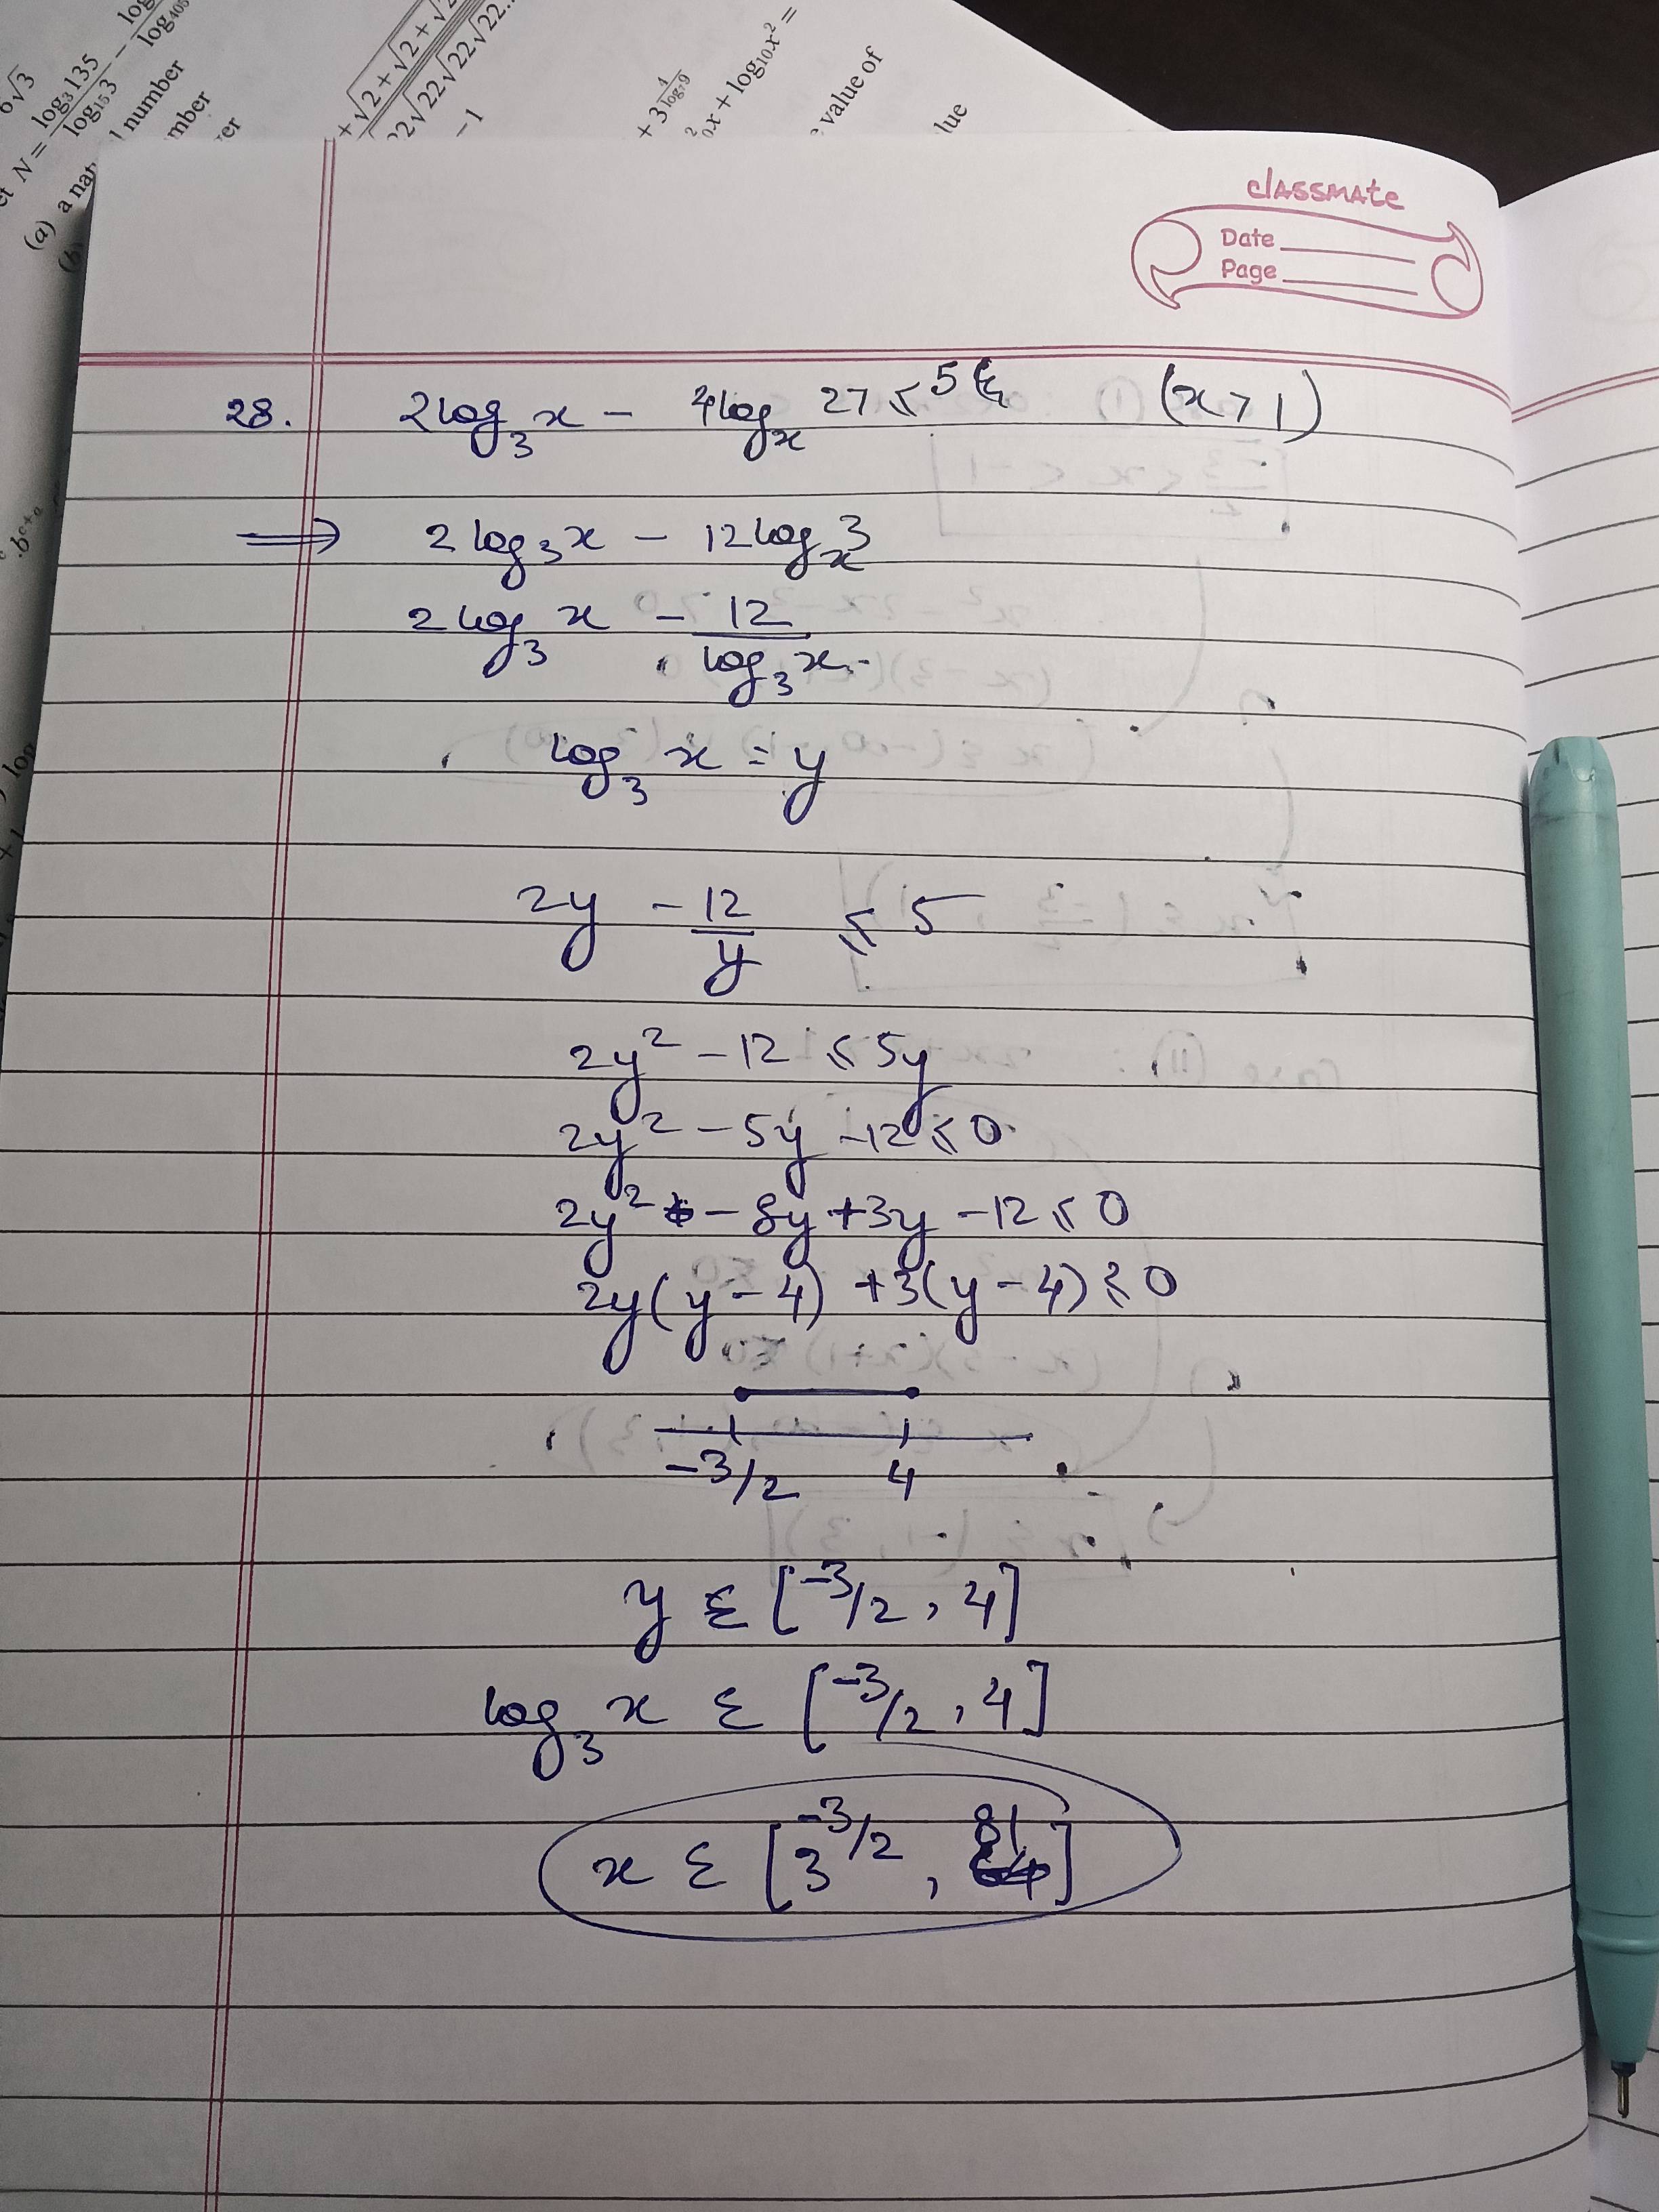 6√3
et N = log₃135/log₁₅3 − log
log₄₀₅
(a) a nat
l number
mber
+ √2 + √2 + √2
22√22√22√22...
−1
+ 3^(4/log₇9)
x + log₁₀x² =
value of
lue
classmate
Date
Page
28. 2log₃x − 4logₓ27 ≤ 5 & (x > 1)
⟹ 2log₃x − 12logₓ3
2log₃x − 12/log₃x
log₃x = y
2y − 12/y ≤ 5
2y² − 12 ≤ 5y
2y² − 5y − 12 ≤ 0
2y² − 8y + 3y − 12 ≤ 0
2y(y − 4) + 3(y − 4) ≤ 0
−3/2 4
y ε [−3/2, 4]
log₃x ε [−3/2, 4]
x ε [3^(−3/2), 81]